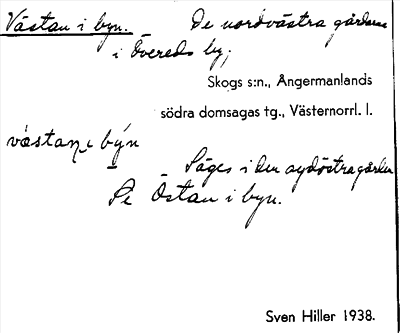 Västan i byn. De nordvästra gårdarna
i Övereds by;
Skogs s:n., Ångermanlands
södra domsagas tg., Västernorrl. l.
västan i býn
Säges i den sydöstra gården
Se Östan i byn.
Sven Hiller 1938.